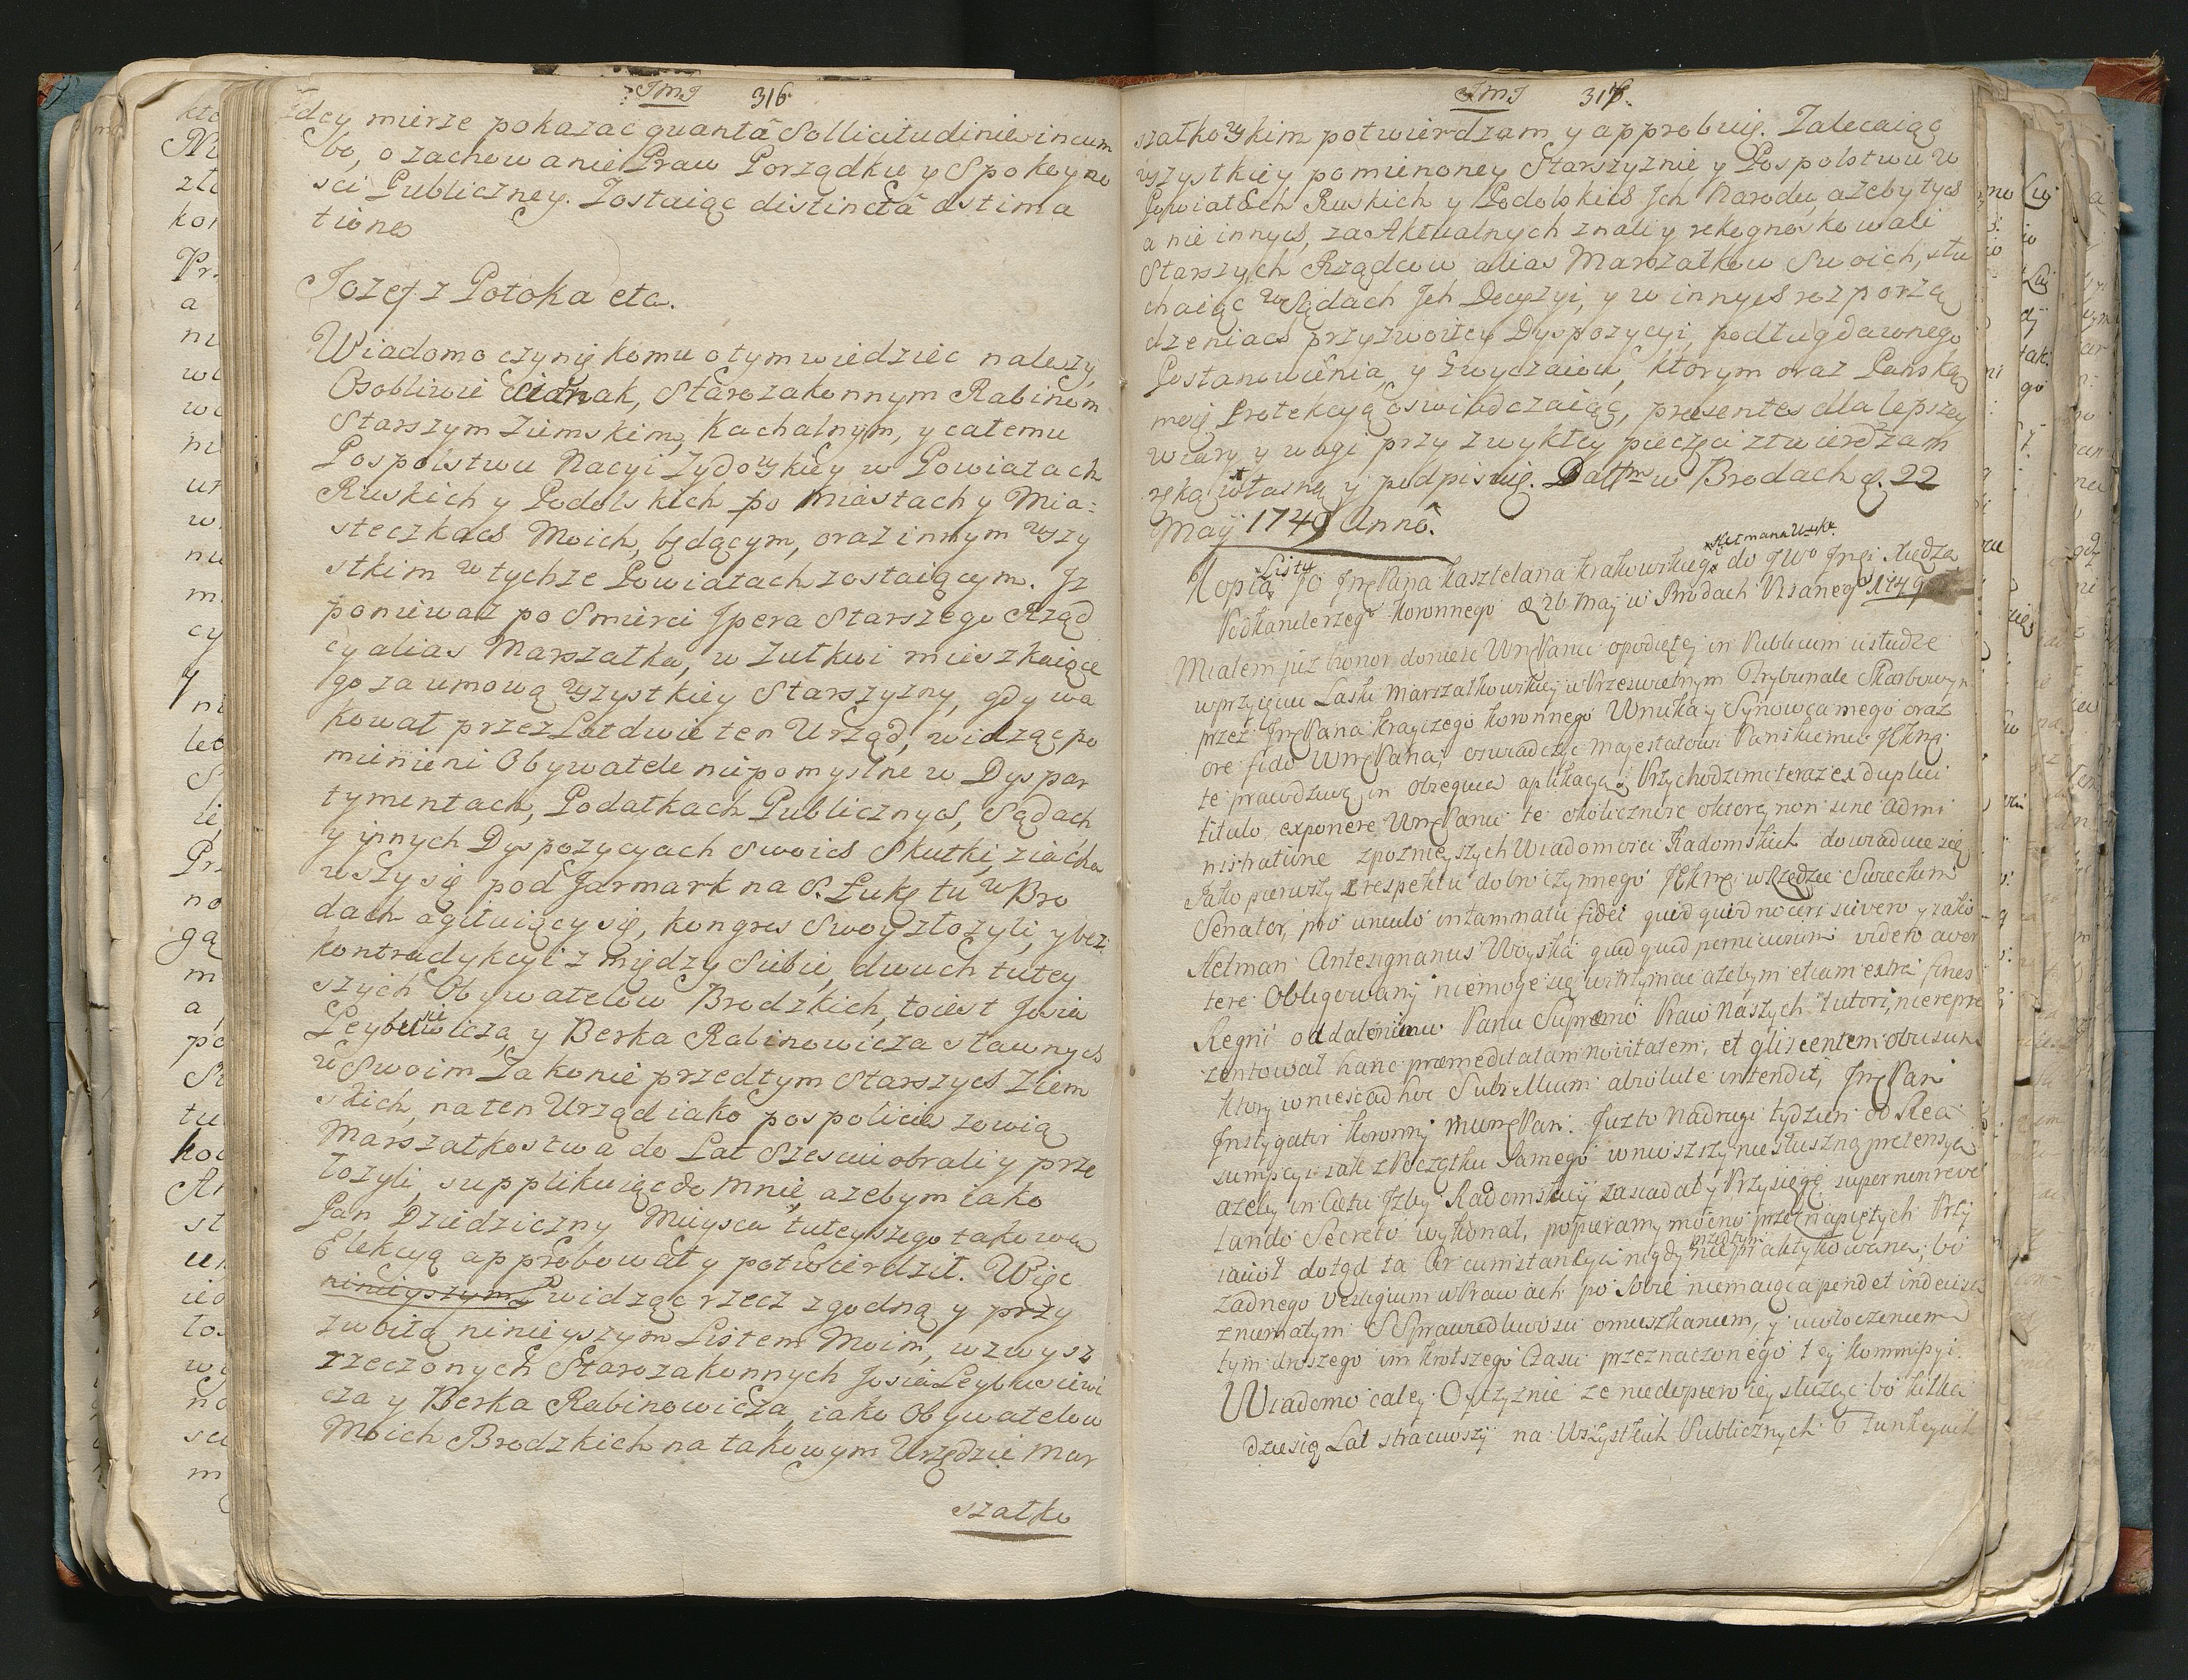 JMJ 316
żdey mierze pokazać quantâ Sollicitudine incum
bo, o zachowanie Praw Porządku y Spokoyno
sci Publiczney. Zostaiąc distinctâ æstima
tione
Jozef z Potoka etc.
Wiadomo czynię komu o tym wiedziec nalezy,
Osobliwie iednak, Starozakonnym Rabinom
Starszym Ziemskim, Kachalnym, y całemu
Pospolstwu Nacyi Zydoskiey w Powiatach
Ruskich y Podolskich po Miastach y Mia:
steczkach Moich, będącym, oraz innym wszy
stkim w tychze Powiatach zostaiącym. Iz
poniewaz po Smierci Jpera Starszego Rząd
cy alias Marszałka, w Zułkwi mieszkaiące
go za umową wszystkiey Starszyzny, gdy wa
kował przez Lat dwie ten Urząd, widząc po
mienieni Obywatele niepomyslne w Dyspar
tymentach, Podatkach Publicznych, Sądach
y innych Dyspozycyach Swoich Skutki, ziacha
wszy się pod Jarmark na S. Łukę tu w Bro
dach agituiący się, kongres Swoy złozyli, y bez
kontradykcyi z między Siebie, dwuch tutey
szych Obywatelow Brodzkich, toiest Josia
Leybusiewicza, y Berka Rabinowicza sławnych
w Swoim Zakonie przedtym Starszych Ziem
skich, na ten Urząd iako pospolicie zowią
Marszałkostwa do Lat Szesciu obrali y prze
łozyli, supplikuiąc do mnie, azebym iako
Pan Dziedziczny Mieysca tuteyszego takowę
Elekcyą approbował y potwierdził. Więc
ninieyszym widząc rzecz zgodną y przy
zwoitą ninieyszym Listem Moim, wzwysz
rzeczonych Starozakonnych Josia Leybusiewi
cza y Berka Rabinowicza, iako Obywatelow
Moich Brodzkich na takowym Urzędzie Mar
szałko
JMJ 317.
szałkoskim potwierdzam y approbuię. Zalecaiąc
wszystkiey pomienoney Starszyznie y Pospolstwu w
Powiatach Ruskich y Podolskich Ich Narodu, azeby tych
a nie innych, za Aktualnych znali y rekognoskowali
Starszych Rządcow, alias Marszałkow Swoich, słu
chaiąc w Sądach Ich Decyzyi, y w innych rozporzą
dzeniach przyzwoitey Dyspozycyi, podług dawnego
Postanowienia, y Zwyczaiow, ktorym oraz Pańską
moię Protekcyą oswiadczaiąc, præsentes dla lepszey
wiary y wagi przy zwykłey pieczęci ztwierdzam
ręką własną y podpisuię. Datm w Brodach d. 22
Maij 1749 Annô.
Kopia Listu JO Jmć Pana Kasztelana Krakowskiego Hetmana W. Ko. do JWo Jmći Xiędza
Podkanclerzego Koronnego d. 26 Maij w Brodach Pisanego 1749
Miałem juz honor donieść Wmć Panu o podiętej in Publicum usłudze
w przyięciu Laski Marszałkowskiey w Przeswietnym Trybunale Skarbowym
przez Jmć Pana Krayczego Koronnego Wnuka y Synowca mego oraz
ore fido Wmć Pana, oswiadczyć Majestatowi Pańskiemu JKMći
te prawdziwą in obsequia aplikacyą. Przychodzi mi teraz ex duplici
titulo exponere Wmć Panu te okolicznosc o ktorej non sine admi
ratione z poznieyszych Wiadomosci Radomskich dowiaduię się
Jako pierwszy z respektu dobroczynnego JKMći w Rzędzie Swieckim
Senator, pro vinculo intaminatæ fidei quid quid noceri scivero y iako
Hetman Antesignanus Woyska quid quid perniciosum videro aver
tere Obligowany niemogę się wstrzymac azebym etiam extra fines
Regni oddalonemu Panu Supremo Praw Naszych tutori, nierepre
zentował hanc præmeditatam Novitatem, et gliscentem abusum
ktory wniesc ad hoc Subsellium absolute intendit, Jmć Pan
Instygator Koronny Mmć Pan. Juz to na drugi tydzien od Rea
sumpcyi iak z Początku Samego wniosszy niesłuszną pretensyą
azeby in Cætu Izby Radomskiey zasiadał y Przysięgę super non reve
lando Secreto wykonał, popieramy mocno przez napiętych Przy
iacioł dotąd ta Circumstancya nigdy przedtym niepraktykowana, bo
zadnego Vestigium w Prawach po Sobie niemaiąca pendet indecisa
z niemałym SSprawiedliwosci omieszkaniem, y uwłoczeniem
tym drozszego im krotszego Czasu przeznaczonego tey Kommissyi.
Wiadomo całey Oyczyznie ze niedopiero iey słuzyć bo kilka
dziesią Lat strawiwszy na Wszystkich Publicznych Funkcyach